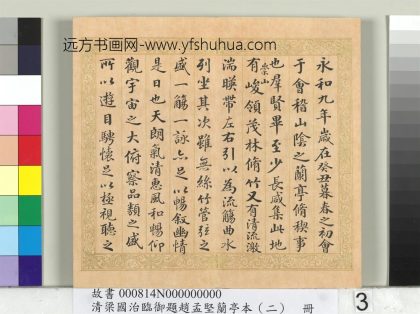 远方书画网-www.yfshuhua.com
永和九年歲在癸丑暮春之初會
于會稽山陰之蘭亭脩稧事
也羣賢畢至少長咸集此地
有崇山峻領茂林脩竹又有清流激
湍暎帶左右引以為流觴曲水
列坐其次雖無絲竹管弦之
盛一觴一詠亦足以暢敘幽情
是日也天朗氣清惠風和暢仰
觀宇宙之大俯察品類之盛
所以遊目騁懷足以極視聽之
故書 000814N000000000
清梁國治臨御題趙孟堅蘭亭本（二） 冊
3